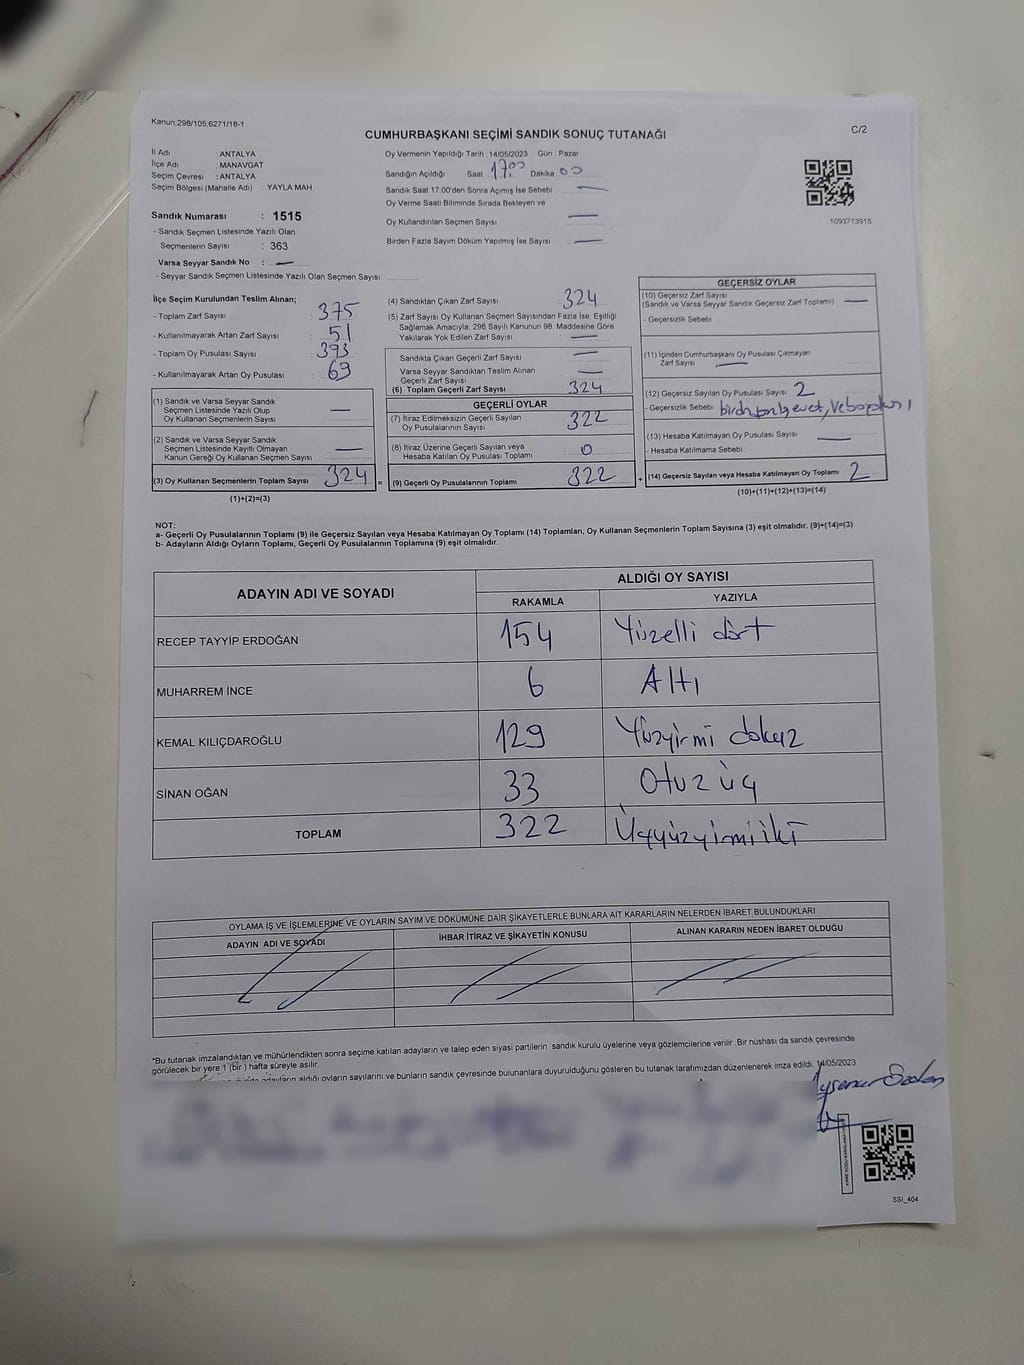 Kanun:298/105;6271/18-1
CUMHURBAŞKANI SEÇİMİ SANDIK SONUÇ TUTANAĞI
C/2
İl Adı : ANTALYA
İlçe Adı : MANAVGAT
Seçim Çevresi : ANTALYA
Seçim Bölgesi (Mahalle Adı) : YAYLA MAH.
Oy Vermenin Yapıldığı Tarih :14/05/2023 Gün : Pazar
Sandığın Açıldığı Saat 17:00 Dakika 00
Sandık Saat 17.00'den Sonra Açılmış İse Sebebi —
Oy Verme Saati Bitiminde Sırada Bekleyen ve
Oy Kullandırılan Seçmen Sayısı —
Birden Fazla Sayım Döküm Yapılmış İse Sayısı —
1093713915
Sandık Numarası : 1515
- Sandık Seçmen Listesinde Yazılı Olan
Seçmenlerin Sayısı : 363
Varsa Seyyar Sandık No : —
- Seyyar Sandık Seçmen Listesinde Yazılı Olan Seçmen Sayısı:
İlçe Seçim Kurulundan Teslim Alınan;
- Toplam Zarf Sayısı 375
- Kullanılmayarak Artan Zarf Sayısı 51
- Toplam Oy Pusulası Sayısı 393
- Kullanılmayarak Artan Oy Pusulası 69
(1) Sandık ve Varsa Seyyar Sandık
Seçmen Listesinde Yazılı Olup
Oy Kullanan Seçmen Sayısı —
(2) Sandık ve Varsa Seyyar Sandık
Seçmen Listesinde Kayıtlı Olmayan
Kanun Gereği Oy Kullanan Seçmen Sayısı —
(3) Oy Kullanan Seçmenlerin Toplam Sayısı 324 =
(1)+(2)=(3)
(4) Sandıktan Çıkan Zarf Sayısı 324
(5) Zarf Sayısı Oy Kullanan Seçmen Sayısından Fazla İse, Eşitliği
Sağlamak Amacıyla, 298 Sayılı Kanunun 98. Maddesine Göre
Yakılarak Yok Edilen Zarf Sayısı —
Sandıkta Çıkan Geçerli Zarf Sayısı —
Varsa Seyyar Sandıktan Teslim Alınan
Geçerli Zarf Sayısı —
(6) Toplam Geçerli Zarf Sayısı 324
GEÇERLİ OYLAR
(7) İtiraz Edilmeksizin Geçerli Sayılan
Oy Pusulalarının Sayısı 322
(8) İtiraz Üzerine Geçerli Sayılan veya
Hesaba Katılan Oy Pusulası Toplamı 0
(9) Geçerli Oy Pusulalarının Toplamı 322 +
GEÇERSİZ OYLAR
(10) Geçersiz Zarf Sayısı
(Sandık ve Varsa Seyyar Sandık Geçersiz Zarf Toplamı) : —
- Geçersizlik Sebebi
(11) İçinden Cumhurbaşkanı Oy Pusulası Çıkmayan
Zarf Sayısı —
(12) Geçersiz Sayılan Oy Pusulası Sayısı 2
- Geçersizlik Sebebi
(13) Hesaba Katılmayan Oy Pusulası Sayısı —
- Hesaba Katılmama Sebebi
(14) Geçersiz Sayılan veya Hesaba Katılmayan Oy Toplamı 2
(10)+(11)+(12)+(13)=(14)
NOT:
a- Geçerli Oy Pusulalarının Toplamı (9) ile Geçersiz Sayılan veya Hesaba Katılmayan Oy Toplamı (14) Toplamları, Oy Kullanan Seçmenlerin Toplam Sayısına (3) eşit olmalıdır. (9)+(14)=(3)
b- Adayların Aldığı Oyların Toplamı, Geçerli Oy Pusulalarının Toplamına (9) eşit olmalıdır.
ADAYIN ADI VE SOYADI
ALDIĞI OY SAYISI
RAKAMLA YAZIYLA
RECEP TAYYİP ERDOĞAN 154 Yüzelli dört
MUHARREM İNCE 6 Altı
KEMAL KILIÇDAROĞLU 129 Yüzyirmi dokuz
SİNAN OĞAN 33 Otuz üç
TOPLAM 322 Üçyüzyirmiiki
OYLAMA İŞ VE İŞLEMLERİNE VE OYLARIN SAYIM VE DÖKÜMÜNE DAİR ŞİKAYETLERLE BUNLARA AİT KARARLARIN NELERDEN İBARET BULUNDUKLARI
ADAYIN ADI VE SOYADI İHBAR İTİRAZ VE ŞİKAYETİN KONUSU ALINAN KARARIN NEDEN İBARET OLDUĞU
*Bu tutanak imzalandıktan ve mühürlendikten sonra seçime katılan adayların ve talep eden siyasi partilerin sandık kurulu üyelerine veya gözlemcilerine verilir. Bir nüshası da sandık çevresinde
görülecek bir yere 1 (bir) hafta süreyle asılır.
adayların aldığı oyların sayılarını ve bunların sandık çevresinde bulunanlara duyurulduğunu gösteren bu tutanak tarafımızdan düzenlenerek imza edildi. 14/05/2023
SSI_404